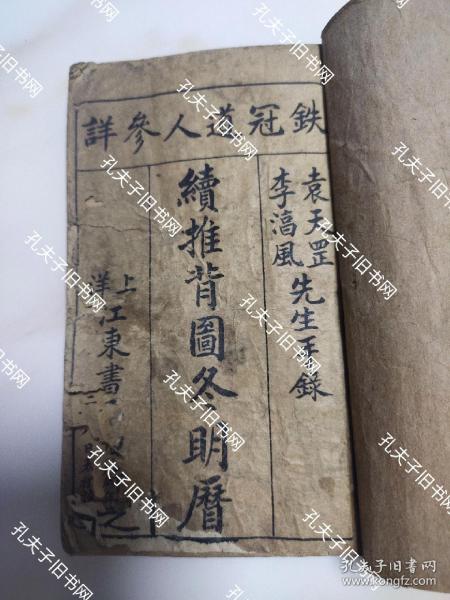 鉄冠道人參詳
袁天罡
李湻風
先生手錄
續推背圖冬明曆
上
洋
江東書
之
孔夫子旧书网
www.kongfz.com